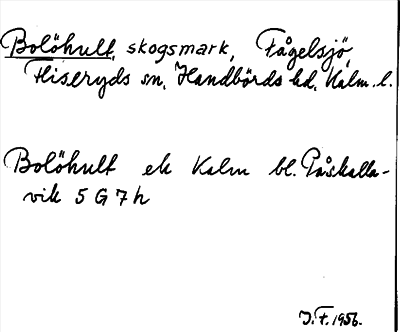 Bolöhult, skogsmark, Fågelsjö,
Fliseryds sn, Handbörds hd. Kalm. l.
Bolöhult ek Kalm bl. Påskalla-
vik 5 G 7 h
J.F. 1956.